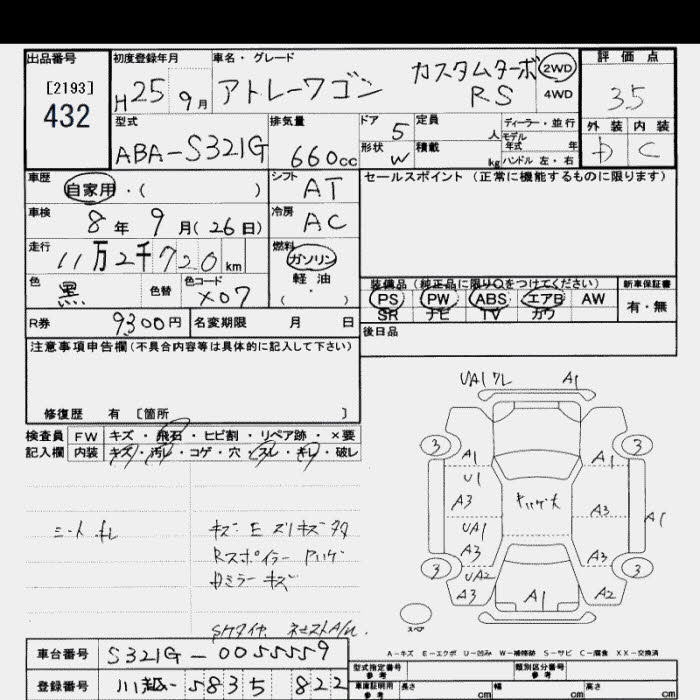 出品番号 初度登録年月 車名・グレード 評価点
[2193]
432
H25 9月 アトレーワゴン カスタムターボ RS 2WD 4WD 3.5
型式 排気量 ドア 5 定員 人 ディーラー・並行 外装 内装
ABA-S321G 660cc 形状 W 積載 kg モデル年式 年 ハンドル 左・右 D C
車歴 自家用・( ) シフト AT セールスポイント(正常に機能するものに限ります)
車検 8年 9月(26日) 冷房 AC
走行 11万2千720km 燃料 ガソリン 軽油 ・( )
色 黒 色替 色コード X07
装備品(純正品に限り○をつけてください) 新車保証書
PS PW ABS エアB AW 有・無
SR ナビ TV カワ
R券 9300円 名変期限 月 日 後日品
注意事項申告欄(不具合内容等は具体的に記入して下さい)
修復歴 有 〔箇所 〕
検査員 FW キズ・飛石・ヒビ割・リペア跡・×要
記入欄 内装 キズ・汚レ・コゲ・穴・スレ・キレ・破レ
UA1 ワレ A1
3 3
A1 A1
U1
A3 A3 A1
UA1
A3 A3
3 3
UA2
A3 A1 A2
スペア
シートキレ
キズ E
Rスポイラー
ミラー キズ
A-キズ E-エクボ U-凹み W-補修跡 S-サビ C-腐食 XX-交換済
車台番号 S321G-0055559
登録番号 川越-5835 822
型式指定番号 参考 類別区分番号 参考
車庫証明用 参考 長さ cm 幅 cm 高さ cm